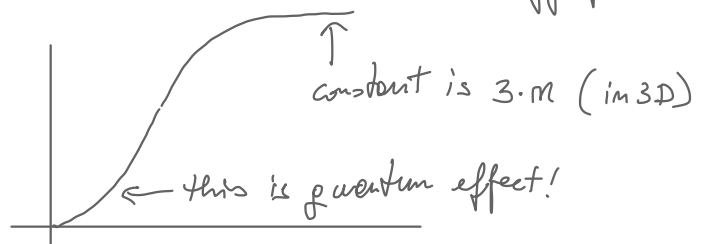 constant is 3·n (in 3D)
this is quantum effect!